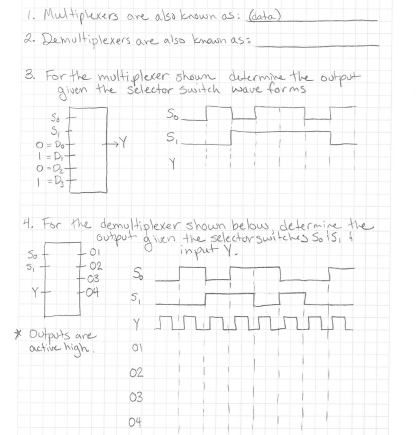 1. Multiplexers are also known as: (data)
2. Demultiplexers are also known as:
3. For the multiplexer shown determine the output
given the selector switch wave forms
S₀
S₁
0 = D₀
1 = D₁
0 - D₂
1 = D₃
Y
S₀
S₁
Y
4. For the demultiplexer shown below, determine the
output given the selector switches S₀ ! S₁ +
input Y.
S₀
S₁
Y
01
02
03
04
* Outputs are
active high.
S₀
S₁
Y
01
02
03
04